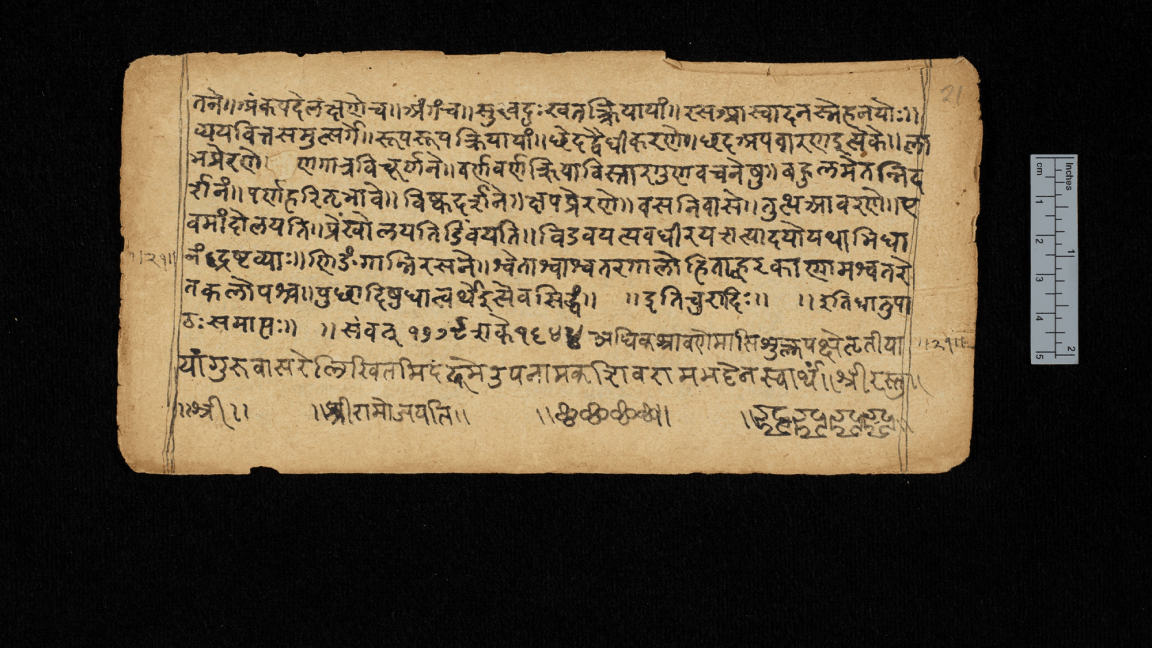 तने॥ अंकपदेलक्षणेच॥ अंगंच॥ सुखदुःखतत्क्रियायां॥ रसआस्वादनस्नेहनयोः॥
व्ययवित्तसमुत्सर्गे॥ रूपरूपक्रियायां॥ छेदद्वैधीकरणे॥ छदअपवारणइत्येके॥ ला
भप्रेरणे॥ व्रणगात्रविचूर्णने॥ वर्णवर्णक्रियाविस्तारगुणवचनेषु॥ बहुलमेतन्निद
र्शनं॥ पर्णहरितभावे॥ विष्कदर्शने॥ क्षपप्रेरणे॥ वसनिवासे॥ तुत्थआवरणे॥ ए
वमांदोलयति॥ प्रेंखोलयति डिंबयति॥ विडंबयत्यवधीरयत्यादयोयथाभिधा
नंद्रष्टव्याः॥ णिङंगान्निरसने॥ श्वेताश्वाश्वतरगालोडिताह्वरकाणामश्वतरे
तकलोपश्च॥ पुछादिषुधात्वर्थेइत्येवसिद्धं॥ ॥इतिचुरादिः॥ ॥इतिधातुपा
ठःसमाप्तः॥ ॥संवत् १७७९ शके१६४४ अधिकश्रावणेमासिशुक्लपक्षेतृतीया
यांगुरुवासरेलिखितमिदं उपनामक रामभट्टेनस्वार्थं॥ श्रीरस्तु॥
॥श्री॥ ॥श्रीरामोजयति॥
॥२१॥
॥२१॥
21
cm
Inches
1 2 3 4 5
1 2